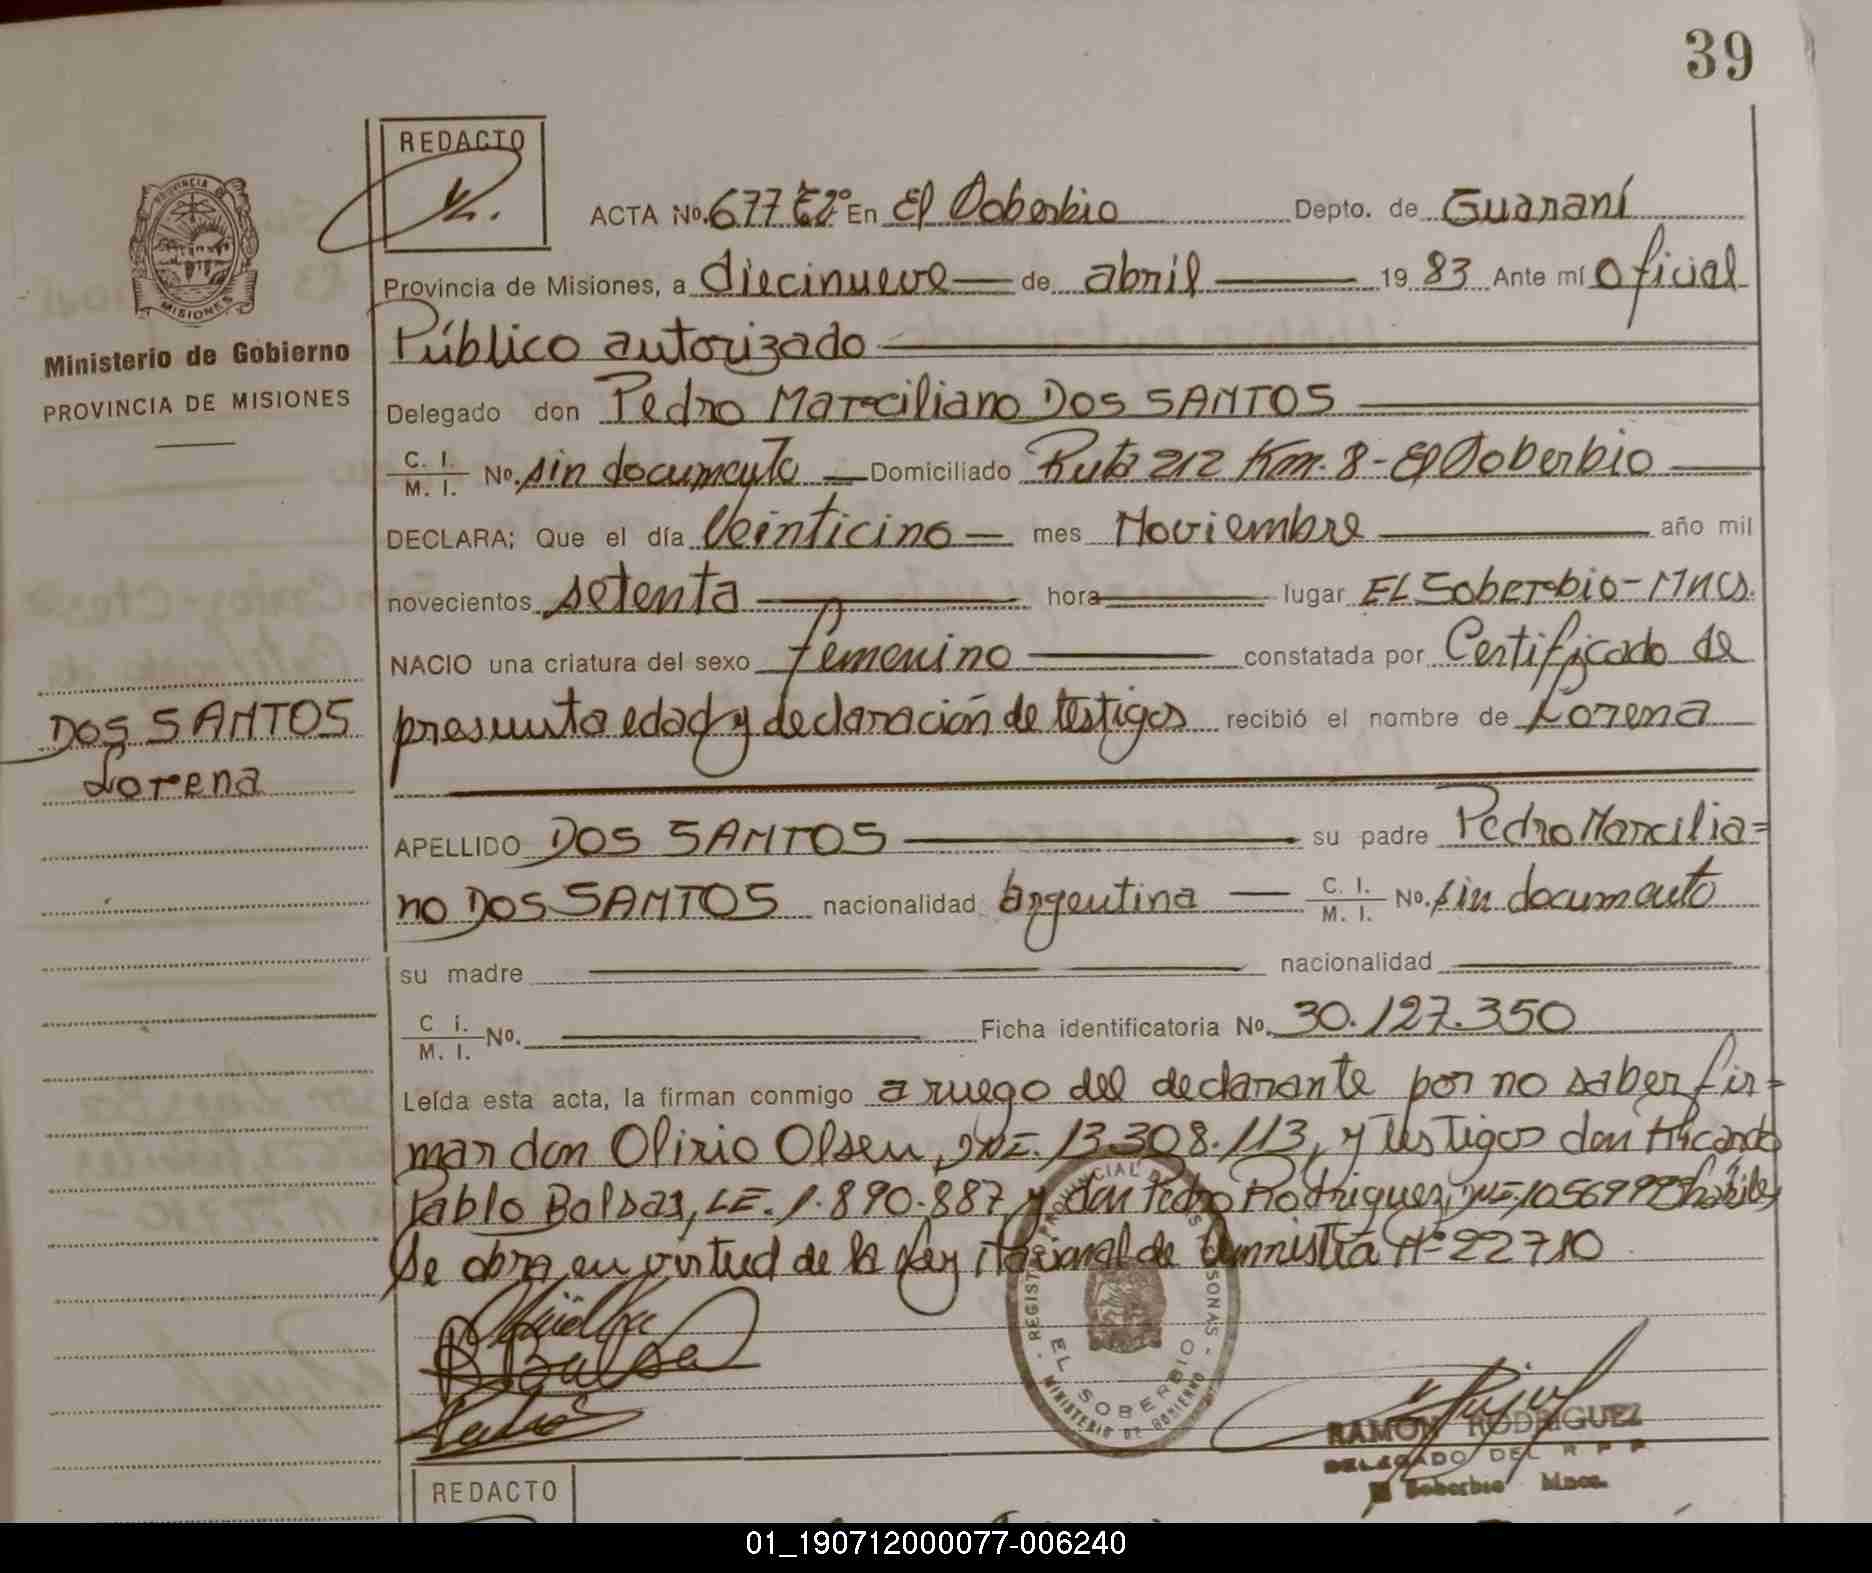 39
REDACTO
ACTA No. 677 T2º En El Soberbio Depto. de Guaraní
Provincia de Misiones, a diecinueve de abril 1983 Ante mí Oficial
Público autorizado
Ministerio de Gobierno
PROVINCIA DE MISIONES
Delegado don Pedro Marciliano DOS SANTOS
C. I. M. I. No. sin documento Domiciliado Ruta 212 Km. 8 - El Soberbio
DECLARA: Que el día Veinticino mes Noviembre año mil
novecientos setenta hora lugar EL Soberbio - Mnes.
NACIO una criatura del sexo femenino constatada por Certificado de
presunta edad y declaración de testigos recibió el nombre de Lorena
DOS SANTOS
Lorena
APELLIDO DOS SANTOS su padre Pedro Marcilia=
no DOS SANTOS nacionalidad Argentina C. I. M. I. No. sin documento
su madre nacionalidad
C i. M. I. No. Ficha identificatoria No. 30.127.350
Leída esta acta, la firman conmigo a ruego del declarante por no saber fir=
mar don Olirio Olsen, DNI. 13.308.113, y testigos don Ricardo
Pablo Balsas, LE. 1.890.887 y don Pedro Rodriguez, DNI. hábiles
Se obra en virtud de la Ley Nacional de Amnistía Nº 22710
REGISTRO PROVINCIAL DE LAS PERSONAS
EL SOBERBIO
MINISTERIO DE GOBIERNO
RAMON RODRIGUEZ
DELEGADO DEL R P P
El Soberbio Mnes.
REDACTO
01_190712000077-006240